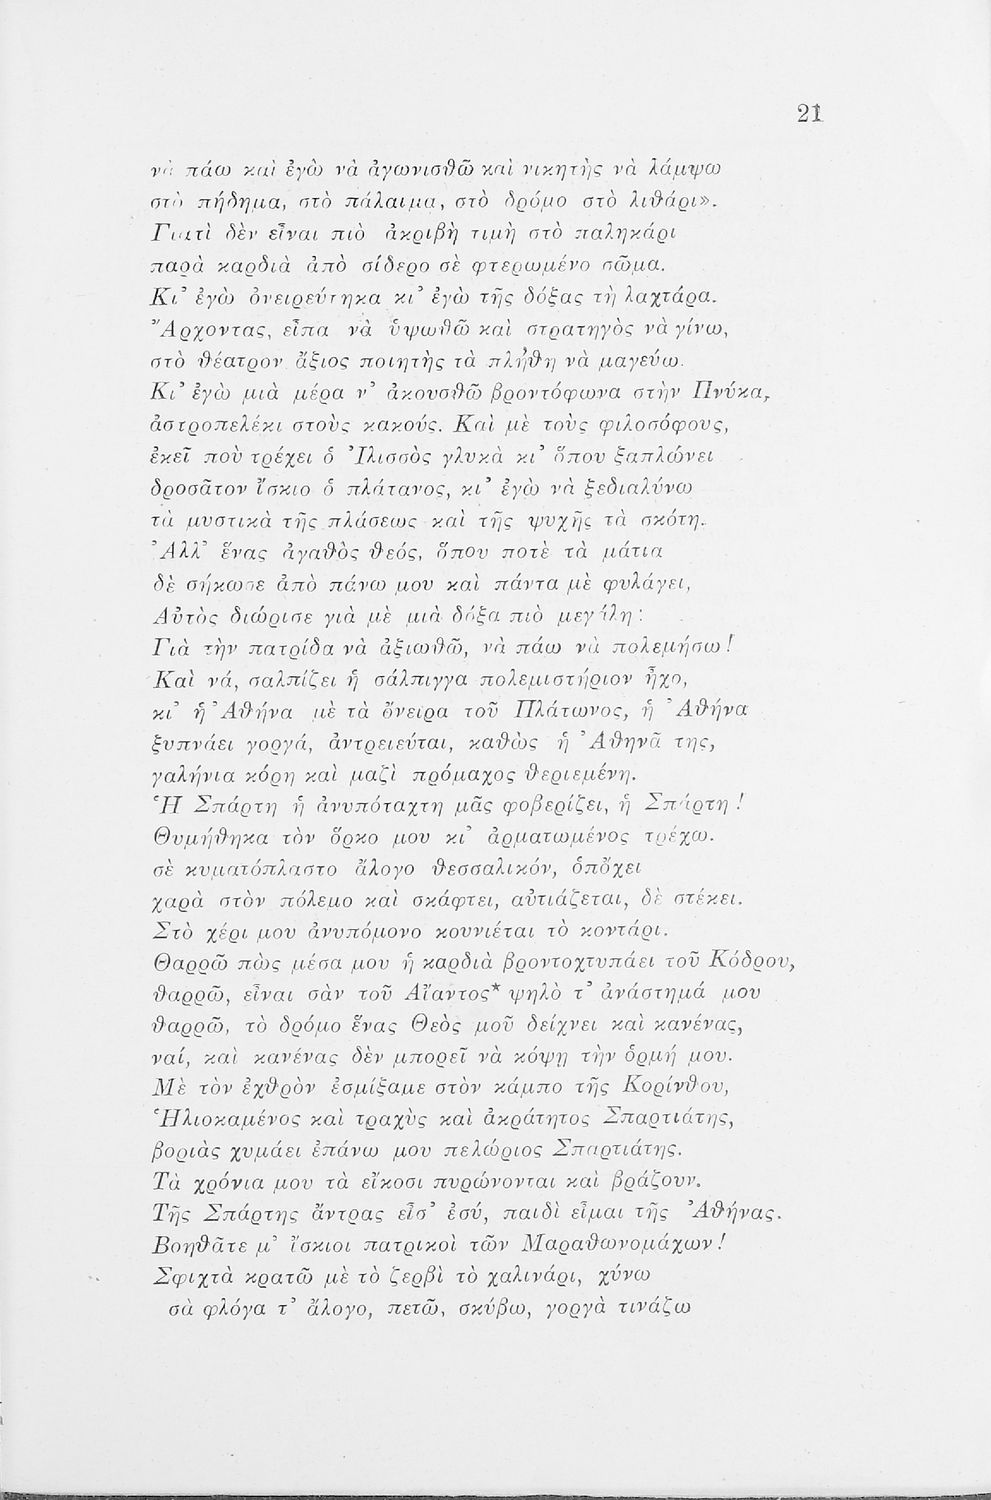 21
νὰ πάω καὶ ἐγὼ νὰ ἀγωνισθῶ καὶ νικητὴς νὰ λάμψω
στὸ πήδημα, στὸ πάλαιμα, στὸ δρόμο στὸ λιθάρι».
Γιατὶ δὲν εἶναι πιὸ ἀκριβὴ τιμὴ στὸ παληκάρι
παρὰ καρδιὰ ἀπὸ σίδερο σὲ φτερωμένο σῶμα.
Κι’ ἐγὼ ὀνειρεύτηκα κι’ ἐγὼ τῆς δόξας τὴ λαχτάρα.
Ἄρχοντας, εἶπα νὰ ὑψωθῶ καὶ στρατηγὸς νὰ γίνω,
στὸ θέατρον ἄξιος ποιητὴς τὰ πλήθη νὰ μαγεύω.
Κι’ ἐγὼ μιὰ μέρα ν’ ἀκουσθῶ βροντόφωνα στὴν Πνύκα,
ἀστροπελέκι στοὺς κακούς. Καὶ μὲ τοὺς φιλοσόφους,
ἐκεῖ ποὺ τρέχει ὁ Ἰλισσὸς γλυκὰ κι’ ὅπου ξαπλώνει
δροσᾶτον ἴσκιο ὁ πλάτανος, κι’ ἐγὼ νὰ ξεδιαλύνω
τὰ μυστικὰ τῆς πλάσεως καὶ τῆς ψυχῆς τὰ σκότη.
Ἀλλ’ ἕνας ἀγαθὸς θεός, ὅπου ποτὲ τὰ μάτια
δὲ σήκωσε ἀπὸ πάνω μου καὶ πάντα μὲ φυλάγει,
Αὐτὸς διώρισε γιὰ μὲ μιὰ δόξα πιὸ μεγάλη :
Γιὰ τὴν πατρίδα νὰ ἀξιωθῶ, νὰ πάω νὰ πολεμήσω!
Καὶ νά, σαλπίζει ἡ σάλπιγγα πολεμιστήριον ἦχο,
κι’ ἡ Ἀθήνα μὲ τὰ ὄνειρα τοῦ Πλάτωνος, ἡ Ἀθήνα
ξυπνάει γοργά, ἀντρειεύται, καθὼς ἡ Ἀθηνᾶ της,
γαλήνια κόρη καὶ μαζὶ πρόμαχος θεριεμένη.
Ἡ Σπάρτη ἡ ἀνυπόταχτη μᾶς φοβερίζει, ἡ Σπάρτη !
Θυμήθηκα τὸν ὅρκο μου κι’ ἀρματωμένος τρέχω.
σὲ κυματόπλαστο ἄλογο θεσσαλικόν, ὁπὄχει
χαρὰ στὸν πόλεμο καὶ σκάφτει, αὐτιάζεται, δὲ στέκει.
Στὸ χέρι μου ἀνυπόμονο κουνιέται τὸ κοντάρι.
Θαρρῶ πὼς μέσα μου ἡ καρδιὰ βροντοχτυπάει τοῦ Κόδρου,
θαρρῶ, εἶναι σὰν τοῦ Αἴαντος* ψηλὸ τ’ ἀνάστημά μου
θαρρῶ, τὸ δρόμο ἕνας Θεὸς μοῦ δείχνει καὶ κανένας,
ναί, καὶ κανένας δὲν μπορεῖ νὰ κόψῃ τὴν ὁρμή μου.
Μὲ τὸν ἐχθρὸν ἐσμίξαμε στὸν κάμπο τῆς Κορίνθου,
Ἡλιοκαμένος καὶ τραχὺς καὶ ἀκράτητος Σπαρτιάτης,
βοριὰς χυμάει ἐπάνω μου πελώριος Σπαρτιάτης.
Τὰ χρόνια μου τὰ εἴκοσι πυρώνονται καὶ βράζουν.
Τῆς Σπάρτης ἄντρας εἶσ’ ἐσύ, παιδὶ εἶμαι τῆς Ἀθήνας.
Βοηθᾶτε μ’ ἴσκιοι πατρικοὶ τῶν Μαραθωνομάχων!
Σφιχτὰ κρατῶ μὲ τὸ ζερβὶ τὸ χαλινάρι, χύνω
σὰ φλόγα τ’ ἄλογο, πετῶ, σκύβω, γοργὰ τινάζω